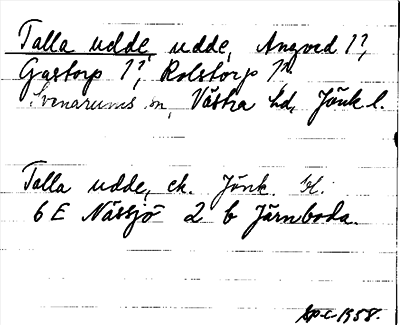 Talla udde, udde, Angved 1?,
Gastorp 1?, Rolstorp 1?.
Svenarums sn, Västra hd, Jönk l.
Talla udde, ek. Jönk. bl.
6 E Nässjö 2 b Järnboda.
1958.